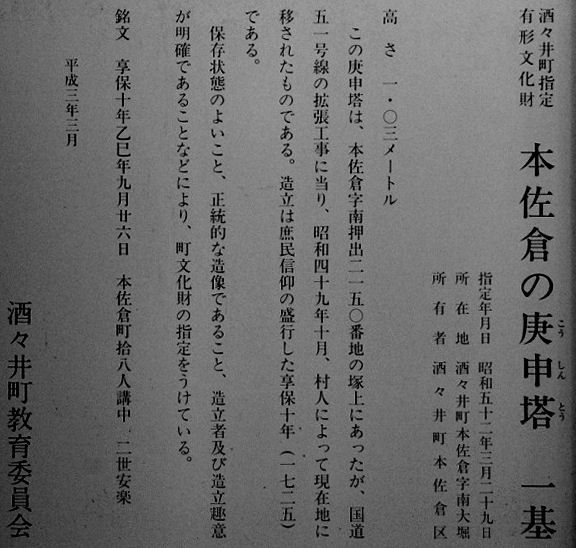 酒々井町指定
有形文化財
本佐倉の庚申塔 一基
こうしんとう
指定年月日 昭和五十二年三月二十九日
所在地 酒々井町本佐倉字南大堀
所有者 酒々井町本佐倉区
高さ 一・〇三メートル
この庚申塔は、本佐倉字南押出二一五〇番地の塚上にあったが、国道
五一号線の拡張工事に当り、昭和四十九年十月、村人によって現在地に
移されたものである。造立は庶民信仰の盛行した享保十年(一七二五)
である。
保存状態のよいこと、正統的な造像であること、造立者及び造立趣意
が明確であることなどにより、町文化財の指定をうけている。
銘文 享保十年乙巳年九月廿六日 本佐倉町拾八人講中 二世安楽
平成三年三月
酒々井町教育委員会